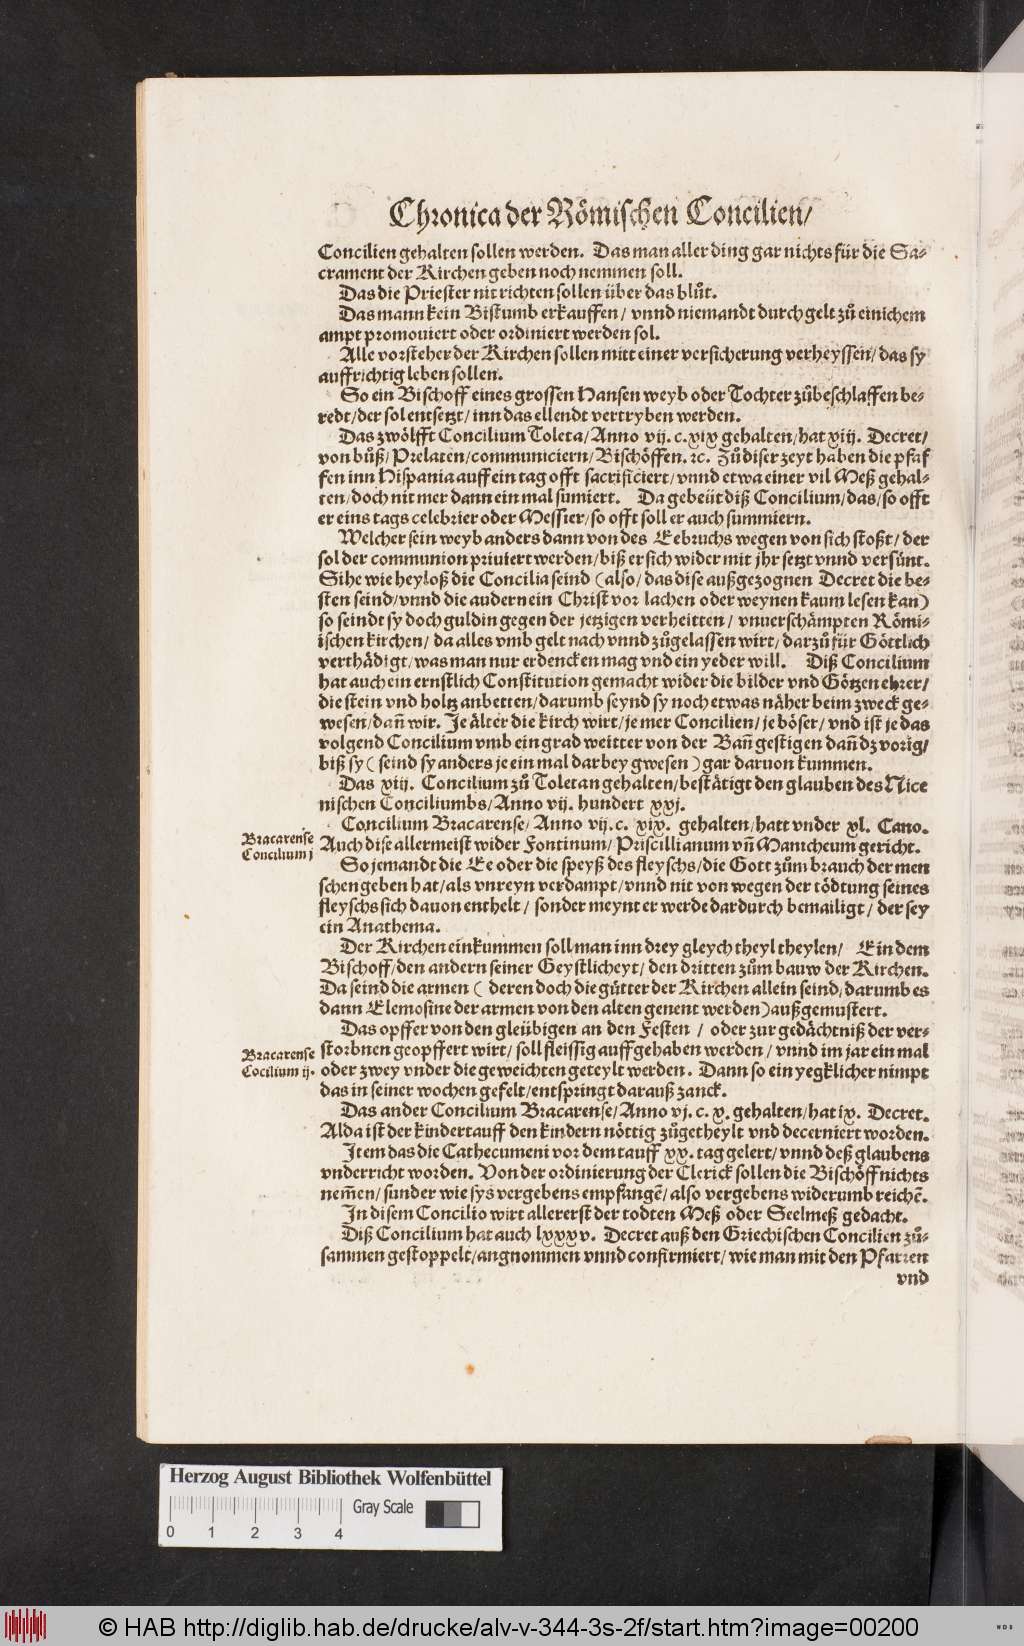 Chronica der Römischen Concilien/
Concilien gehalten sollen werden. Das man aller ding gar nichts für die Sa-
crament der Kirchen geben noch nemmen soll.
Das die Priester nit richten sollen über das blůt.
Das mann kein Bistumb erkauffen/ vnnd niemandt durch gelt zů einichem
ampt promouiert oder ordiniert werden sol.
Alle vorsteher der Kirchen sollen mitt einer versicherung verheyssen/ das sy
auffrichtig leben sollen.
So ein Bischoff eines grossen Hansen weyb oder Tochter zůbeschlaffen be-
redt/ der sol entsetzt/ inn das ellendt vertryben werden.
Das zwölfft Concilium Toleta/ Anno vij. c. xix gehalten/ hat xiij. Decret/
von bůß/ Prelaten/ communiciern/ Bischöffen. ꝛc. Zů diser zeyt haben die pfaf
fen inn Hispania auff ein tag offt sacrificiert/ vnnd etwa einer vil Meß gehal-
ten/ doch nit mer dann ein mal sumiert. Da gebeüt diß Concilium/ das/ so offt
er eins tags celebrier oder Messier/ so offt soll er auch summiern.
Welcher sein weyb anders dann von des Eebruchs wegen von sich stoßt/ der
sol der communion priuiert werden/ biß er sich wider mit jhr setzt vnnd versünt.
Sihe wie heyloß die Concilia seind (also/ das dise außgezognen Decret die be-
sten seind/ vnnd die andern ein Christ vor lachen oder weynen kaum lesen kan)
so seindt sy doch guldin gegen der jetzigen verheitten/ vnuerschämpten Römi-
ischen kirchen/ da alles vmb gelt nach vnnd zůgelassen wirt/ darzů für Göttlich
verthädigt/ was man nur erdencken mag vnd ein yeder will. Diß Concilium
hat auch ein ernstlich Constitution gemacht wider die bilder vnd Götzen ehrer/
die stein vnd holtz anbetten/ darumb seynd sy noch etwas näher beim zweck ge-
wesen/ dañ wir. Je älter die kirch wirt/ je mer Concilien/ je böser/ vnd ist je das
volgend Concilium vmb ein grad weitter von der Bañ gestigen dañ dz vorig/
biß sy (seind sy anders je ein mal darbey gwesen) gar daruon kummen.
Das xiij. Concilium zů Toletan gehalten/ bestätigt den glauben des Nice
nischen Conciliumbs/ Anno vij. hundert xxj.
Bracarense
Concilium j
Concilium Bracarense/ Anno vij. c. xix. gehalten/ hatt vnder xl. Cano.
Auch dise allermeist wider Fontinum/ Priscillianum vñ Manicheum gericht.
So jemandt die Ee oder die speyß des fleyschs/ die Gott zům brauch der men
schen geben hat/ als vnreyn verdampt/ vnnd nit von wegen der tödtung seines
fleyschs sich dauon enthelt/ sonder meynt er werde dardurch bemailigt/ der sey
ein Anathema.
Der Kirchen einkummen soll man inn drey gleych theyl theylen/ Ein dem
Bischoff/ den andern seiner Geystlicheyt/ den dritten zům bauw der Kirchen.
Da seind die armen (deren doch die gůtter der Kirchen allein seind/ darumb es
dann Elemosine der armen von den alten genent werden) außgemustert.
Das opffer von den gleübigen an den Festen/ oder zur gedächtniß der ver-
Bracarense
Cocilium ij.
storbnen geopffert wirt/ soll fleissig auffgehaben werden/ vnnd im jar ein mal
oder zwey vnder die geweichten geteylt werden. Dann so ein yegklicher nimpt
das in seiner wochen gefelt/ entspringt darauß zanck.
Das ander Concilium Bracarense/ Anno vj. c. x. gehalten/ hat ix. Decret.
Alda ist der kindertauff den kindern nöttig zůgetheylt vnd decerniert worden.
Item das die Cathecumeni vor dem tauff xx. tag gelert/ vnnd deß glaubens
vnderricht worden. Von der ordinierung der Clerick sollen die Bischöff nichts
nem̃en/ sunder wie sys vergebens empfangẽ/ also vergebens widerumb reichẽ.
In disem Concilio wirt allererst der todten Meß oder Seelmeß gedacht.
Diß Concilium hat auch lxxxv. Decret auß den Griechischen Concilien zů-
sammen gestoppelt/ angnommen vnnd confirmiert/ wie man mit den Pfarren
vnd
Herzog August Bibliothek Wolfenbüttel
Gray Scale
0 1 2 3 4
© HAB http://diglib.hab.de/drucke/alv-v-344-3s-2f/start.htm?image=00200